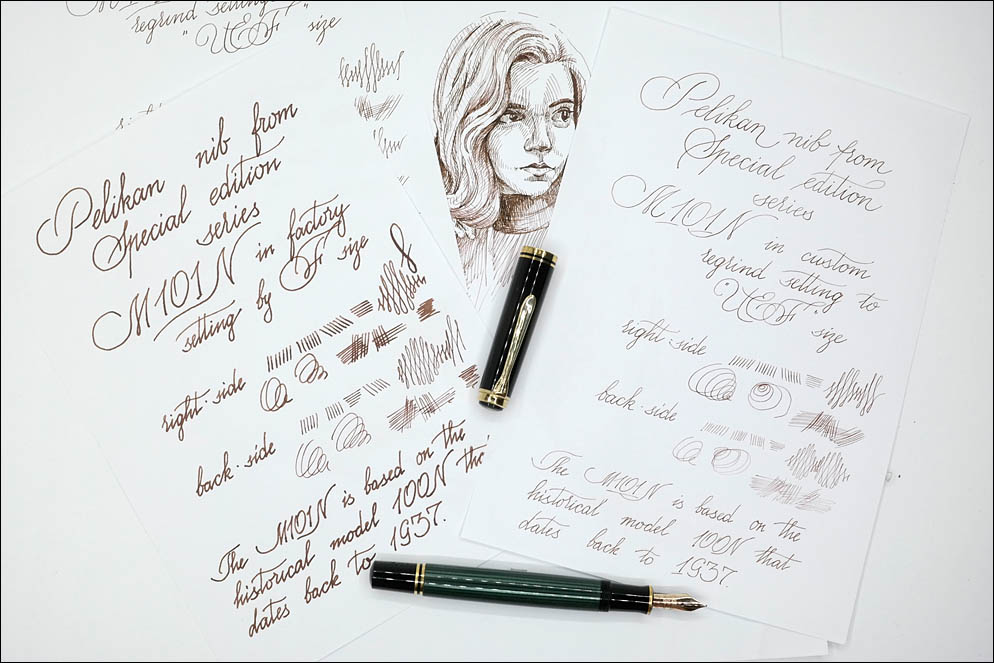 regrind setting to
"UEEF" size
Pelikan nib from
Special edition
series
M101N in factory
setting by "F" size
right-side
back-side
The M101N is based on the
historical model 100N
dates back to 1937.
Pelikan nib from
Special edition
series
M101N in custom
regrind setting to
"UEEF" size
right-side
back-side
The M101N is based on the
historical model 100N that
dates back to 1937.